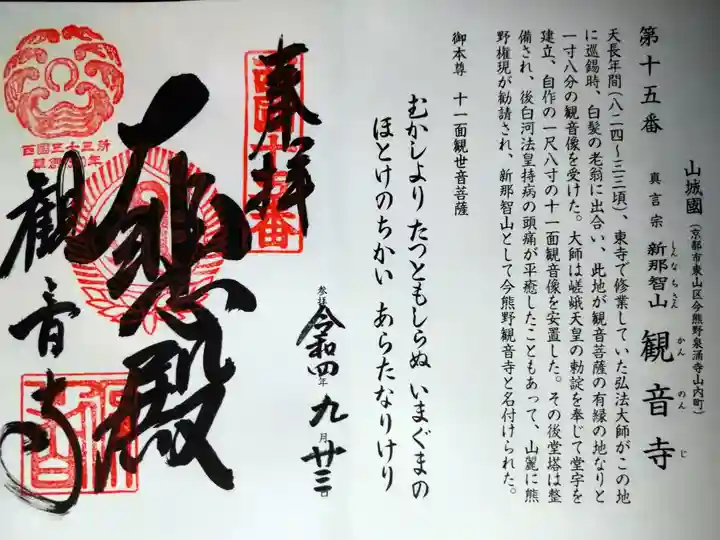 第十五番
山城國（京都市東山区今熊野泉涌寺山内町）
真言宗 新那智山 観音寺
しんなちさん かんのんじ
天長年間（八二四～三三頃）、東寺で修業していた弘法大師がこの地
に巡錫時、白髪の老翁に出合い、此地が観音菩薩の有縁の地なりと
一寸八分の観音像を受けた。大師は嵯峨天皇の勅諚を奉じて堂宇を
建立、自作の一尺八寸の十一面観音像を安置した。その後堂塔は整
備され、後白河法皇持病の頭痛が平癒したこともあって、山麓に熊
野権現が勧請され、新那智山として今熊野観音寺と名付けられた。
御本尊 十一面観世音菩薩
むかしより たつともしらぬ いまぐまの
ほとけのちかい あらたなりけり
参拝 令和四年九月廿三日
奉拝
西国十五番
大悲殿
観音寺
西国三十三所